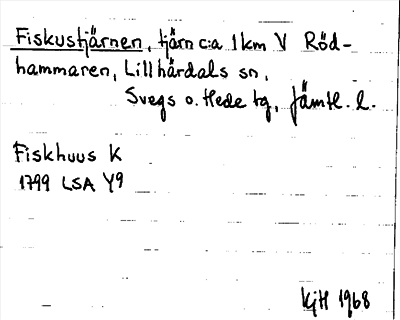 Fiskustjärnen, tjärn c:a 1 km V Röd-
hammaren, Lillhärdals sn,
Svegs o. Hede tg, Jämtl. l.
Fiskhuus K
1799 LSA Y9
KjH 1968